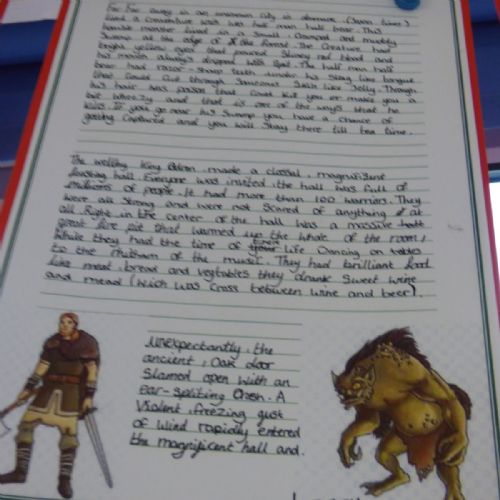 Far Far away in an unknown city in denmark (Seven times)
lived a Converture wich was half man half bear. This
monster lived in a Small Damped and muddy
Swamp at the edge of the forest. The Creature had
bright yellow eyes that poured Slimey red blood and
his mouth always dripped with Spit. The half man half
bear had razor-Sharp teeth under his Slimy like tongue
that Could Cut through Someones Skin like Jelly. Through
his hair was poison that could kill you or make you a
bit and that is one of the ways what he
kills. If you go near his Swamp you have a chance of
getting Captured and you will Stay there till tea time.
The welthy King made a clossal, magnifisent
feasting hall. Everyone was invited, the hall was full of
millions of people. It had more than 100 warriors. They
were all Strong and were not Scared of anything at
all. Right in the center of the hall was a massive
great fire pit that warmed up the whole of the room,
While they had the time of life Dancing on tables
to the rhithem of the music. They had brilliant food
like meat, bread and vegtables they drank Sweet wine
and mead (Wich was Cross between wine and beer).
Unexpectantly, the
ancient, Oak door
Slamed open with an
ear-spliting Chesh. A
Violent, freezing gust
of wind rapidly entered
the magnificent hall and.